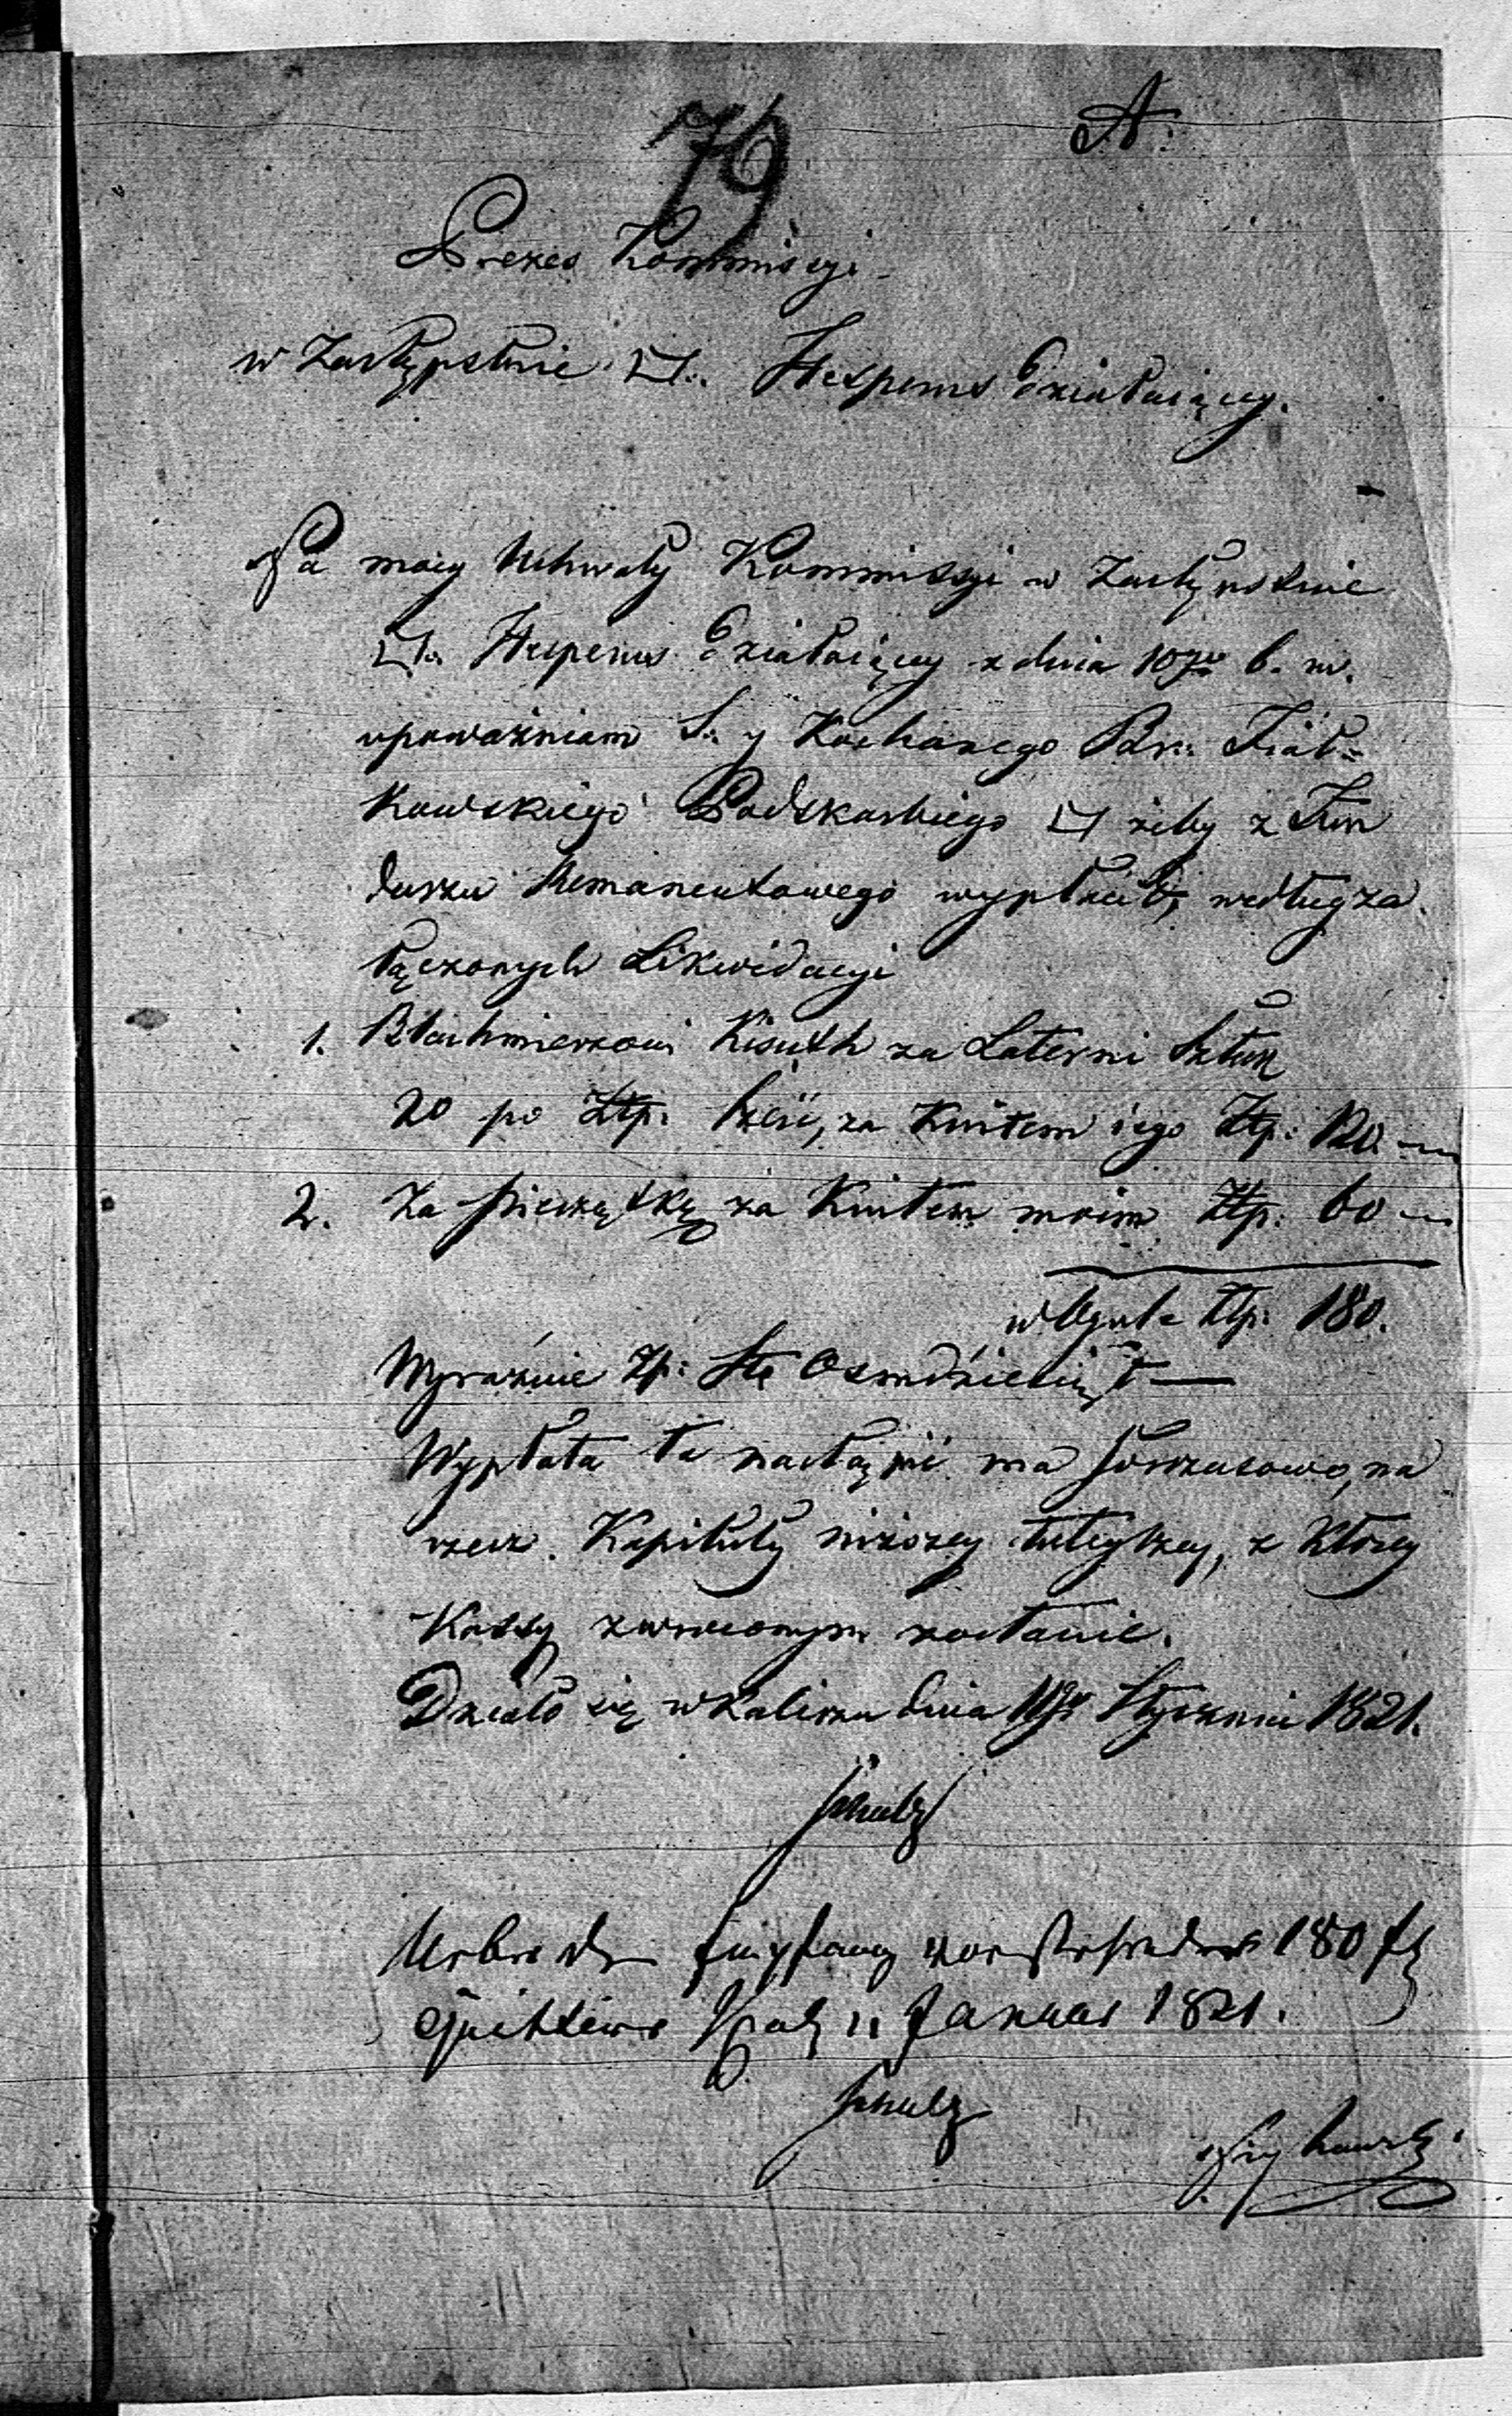 79
A.
Prezes Kommissyi
w Zastępstwie ▭∴ Hesperus Działaiącey.
Na mocy Uchwały Kommissyi w Zastępstwie
▭∴ Hesperus Działaiącey z dnia 10go b. m.
upoważniam S∴ y Kochanego Br∴ Fiał=
kowskiego Podskarbiego ▭ żeby z Fun
duszu Remanentowego wypłacił, według za
łączonych Likwidacyi
1. Blachmierzowi Kisuth za Laterni Sztuk
20 po Złp: sześć, za Kwitem iego Złp: 120 —
2. Za pieczątkę za Kwitem moim Złp: 60 —
w Ogule Złp: 180.
Wyraźnie Zł: Sto Osmdziesiąt —
Wypłata ta nastąpić ma forszusowo, na
rzecz Kapituły niższey tuteyszey, z którey
Kassy zwroconym zostanie.
Działo się w Kaliszu dnia 11go Stycznia 1821.
Schulz
180 fl
11 Januar 1821.
Schulz